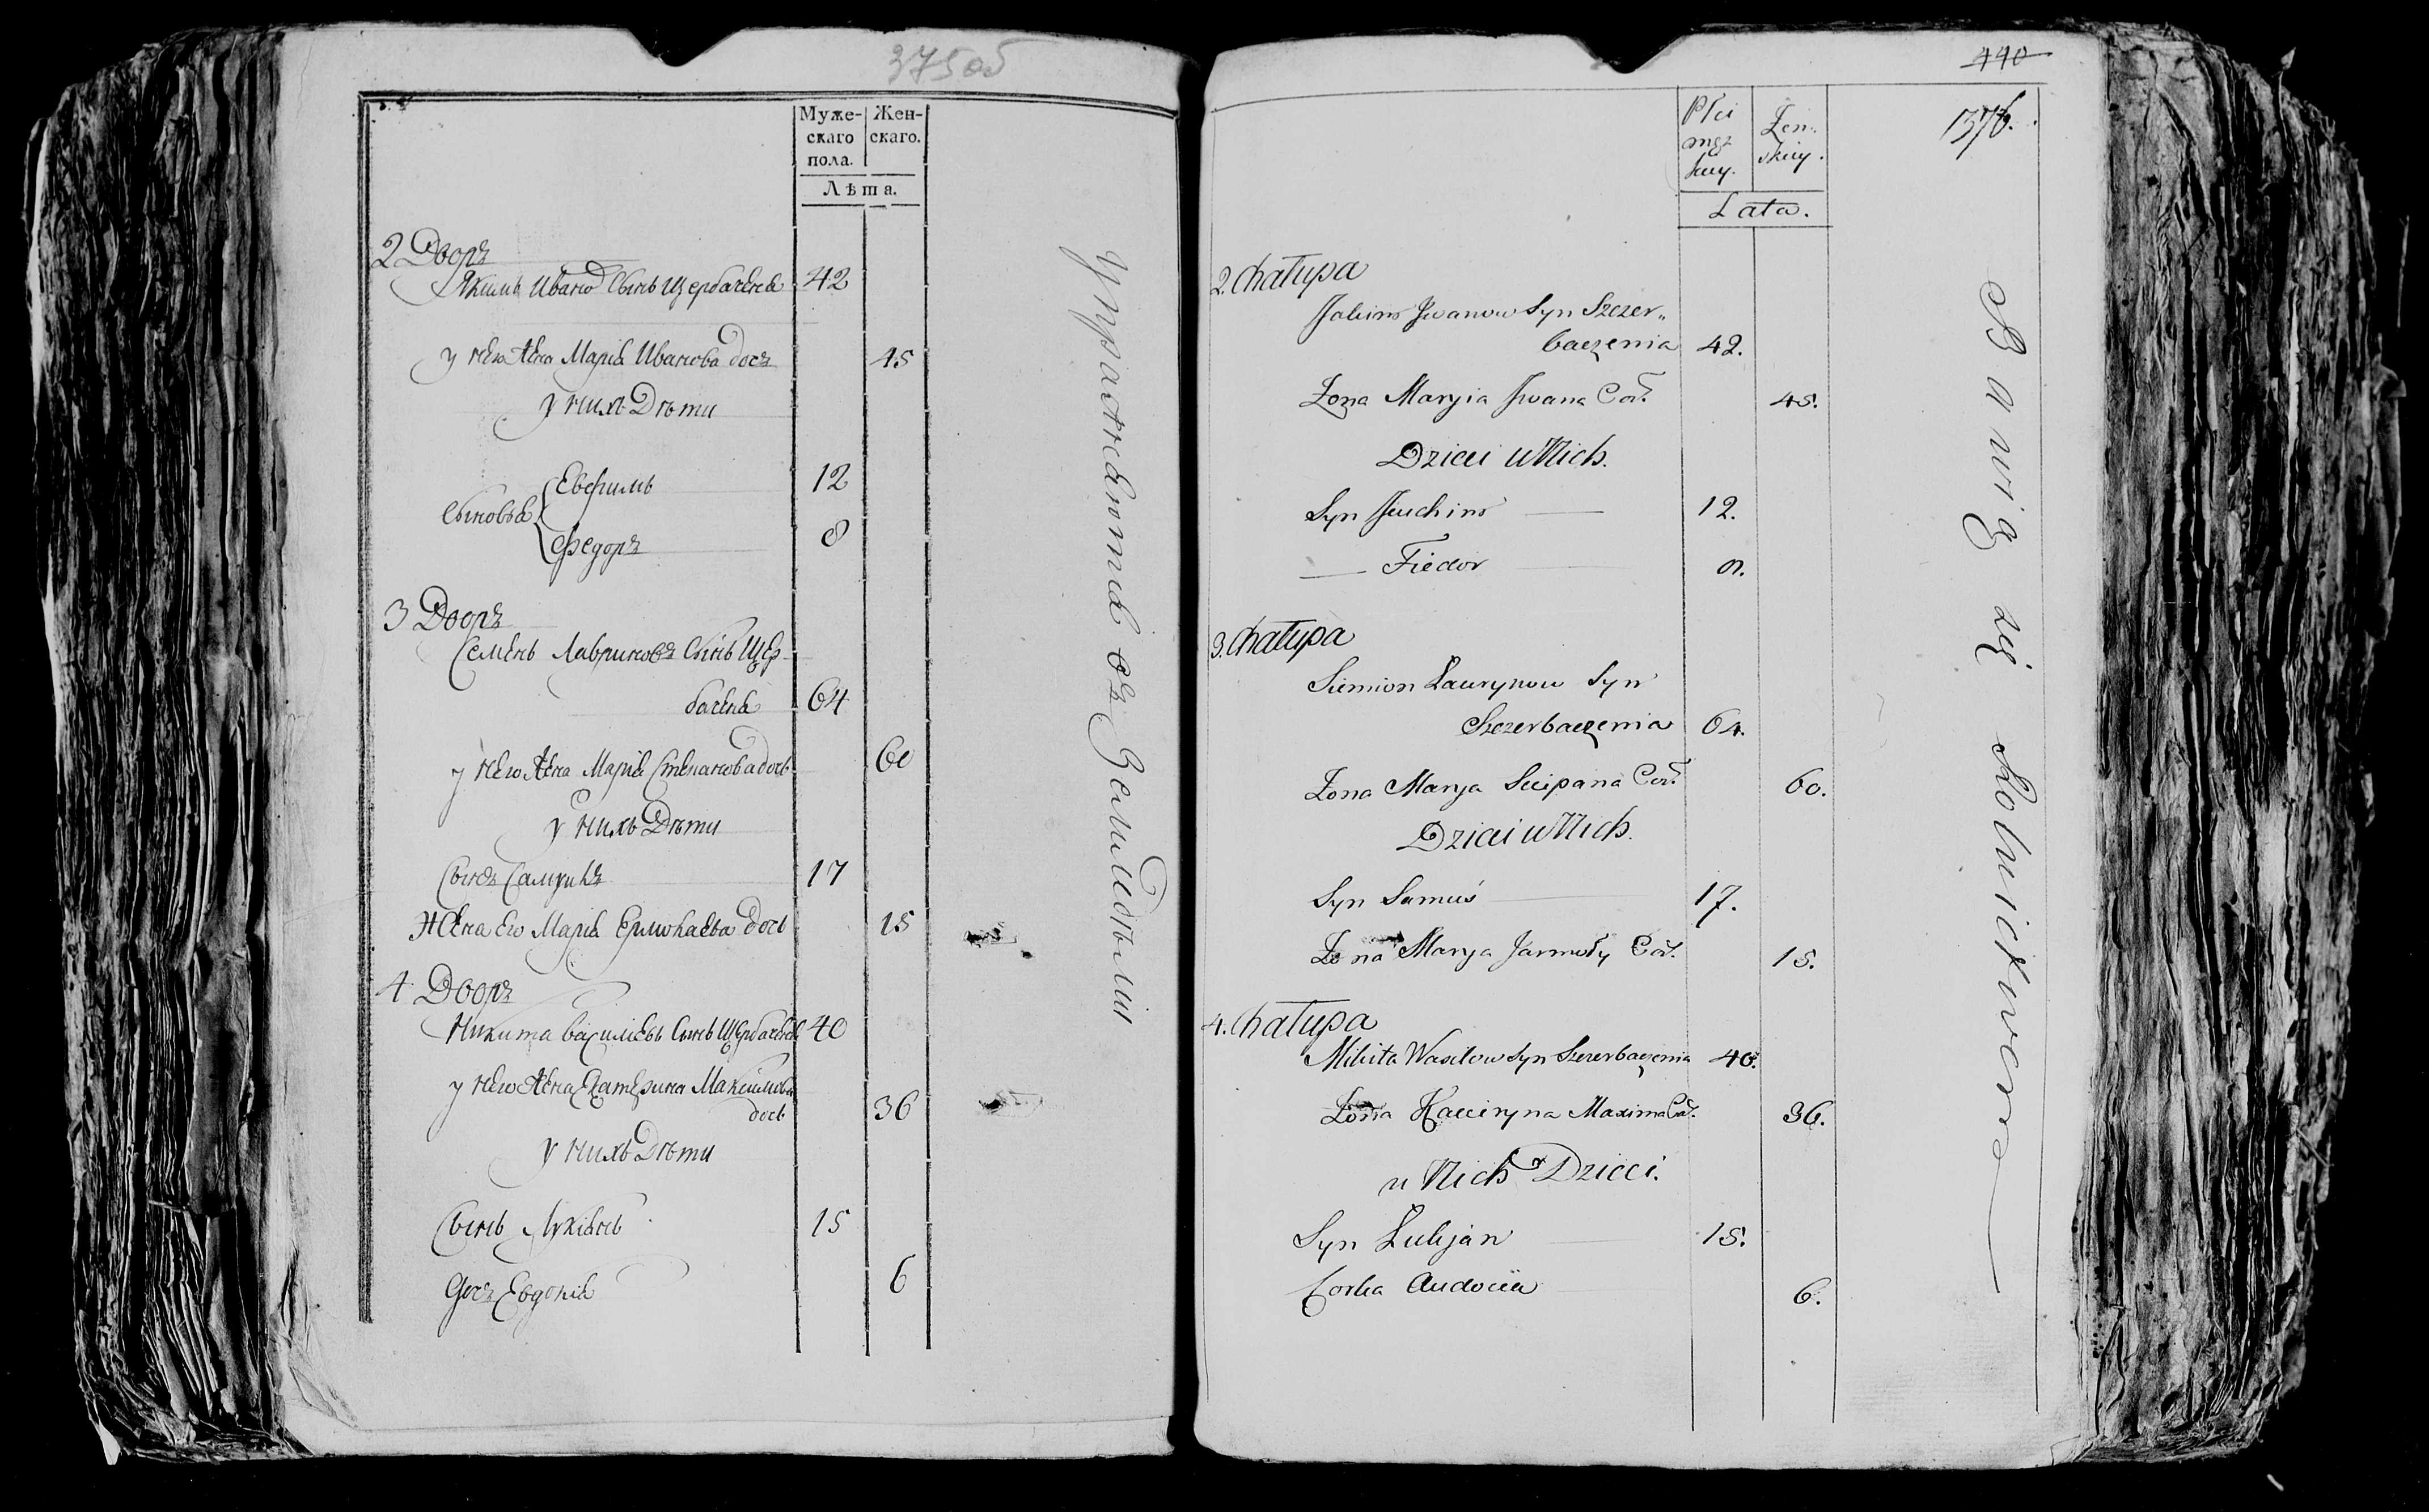 375 об
Муже-
скаго
пола.
Жен-
скаго.
Лѣта.
2 Дворъ
Якимъ Иванов Сынъ Щербаченя 42
у него Жена Марія Иванова дочь 45
у нихъ Дѣти
Сыновья Евфимъ 12
Федоръ 8
3 Дворъ
Семенъ Лавриновъ Сынъ Щер-
баченя 64
у него Жена Марія Степанова дочь 60
у нихъ Дѣти
Сынъ Самуилъ 17
Жена его Марія Ермолаева дочь 15
4 Дворъ
Никита Василевъ Сынъ Щербаченя 40
у него Жена Екатерина Максимова
дочь 36
у нихъ Дѣти
Сынъ Лукьянъ 15
Дочь Евдокія 6
упражняются въ Земледѣліи
440
376.
Płci
męz
kiey.
Żen-
skiey.
Lata.
2. Chałupa
Jakim Jwanow Syn Szczer„
baczenia 42.
Żona Maryia Jwana Cor. 45.
Dzieci u Nich.
Syn Jeuchim 12.
— Fiedor 8.
3. Chałupa
Siemion Laurynow Syn
Szczerbaczenia 64.
Żona Marya Sciepana Cor. 60.
Dzieci u Nich.
Syn Samuś 17.
Żona Marya Jarmoły Cor. 15.
4. Chałupa
Mikita Wasilow Syn Szczerbaczenia 40.
Żona Kacieryna Maxima Cor. 36.
u Nich Dzieci.
Syn Łukjan 15.
Corka Audocia 6.
Bawią się Rolnictwem